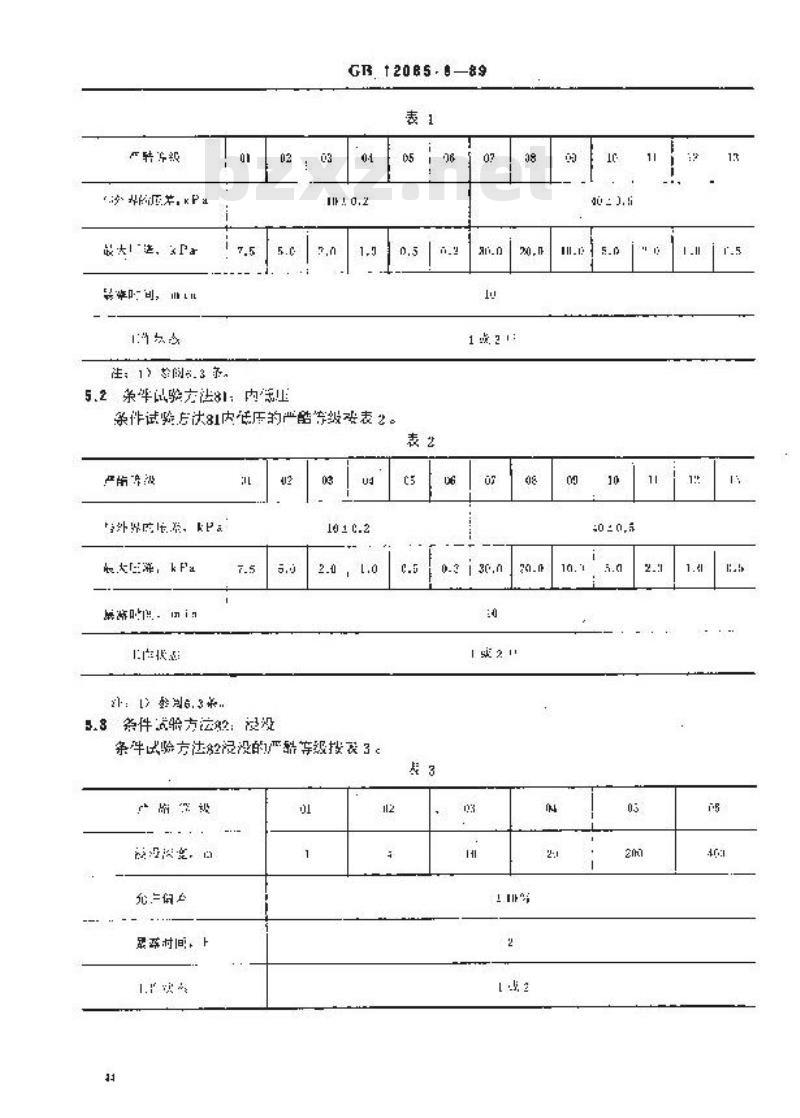 GB 12085.8—89
表 1
严酷等级 01 02 03 04 05 06 07 08 09 10 11 12 13
与外界的压差,kPa 10±0.2 40±0.5
最大压降,kPa 7.5 5.0 2.0 1.0 0.5 0.2 30.0 20.0 10.0 5.0 2.0 1.0 0.5
暴露时间,min 10
工作状态 1或2 1)
注:1)参阅6.3条。
5.2 条件试验方法81:内低压
条件试验方法81内低压的严酷等级按表2。
表 2
严酷等级 01 02 03 04 05 06 07 08 09 10 11 12 13
与外界的压差,kPa 10±0.2 40±0.5
最大压降,kPa 7.5 5.0 2.0 1.0 0.5 0.2 30.0 20.0 10.0 5.0 2.0 1.0 0.5
暴露时间,min 10
工作状态 1或2 1)
注:1)参阅6.3条。
5.3 条件试验方法82:浸没
条件试验方法82浸没的严酷等级按表3。
表 3
严酷等级 01 02 03 04 05 06
浸没深度,m 1 4 10 20 200 400
允许偏差 ±10%
暴露时间,h 2
工作状态 1或2
44
bzxz.net